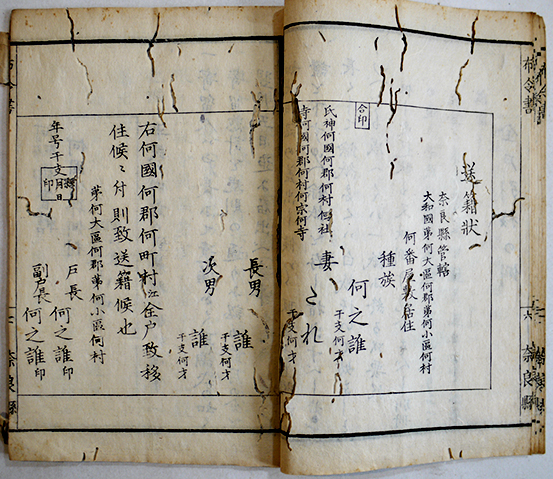 送籍狀
奈良縣管轄
大和國第何大區何郡第何小區何村
何番屋敷居住
種族
何之誰
干支何才
合印
氏神何國何郡何村何社
寺何國何郡何村何宗何寺
妻
され
干支何才
長男
誰
干支何才
次男
誰
干支何才
右何國何郡何町村江全户致移
住候ニ付則致送籍候也
第何大區何郡第何小區何村
戸長 何之誰印
副戸長 何之誰印
年号干支月日
印
奈良縣
奈良縣